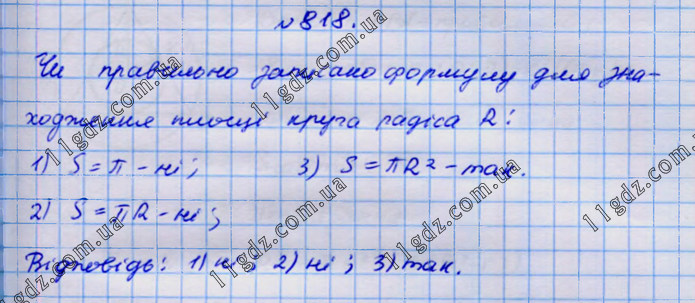 №818.
Чи правильно записано формулу для зна-
ходження площі круга радіса R:
1) S = π - ні; 3) S = πR² - так.
2) S = πR - ні;
Відповідь: 1) ні, 2) ні; 3) так.
11gdz.com.ua
11gdz.com.ua
11gdz.com.ua
11gdz.com.ua
11gdz.com.ua
11gdz.com.ua